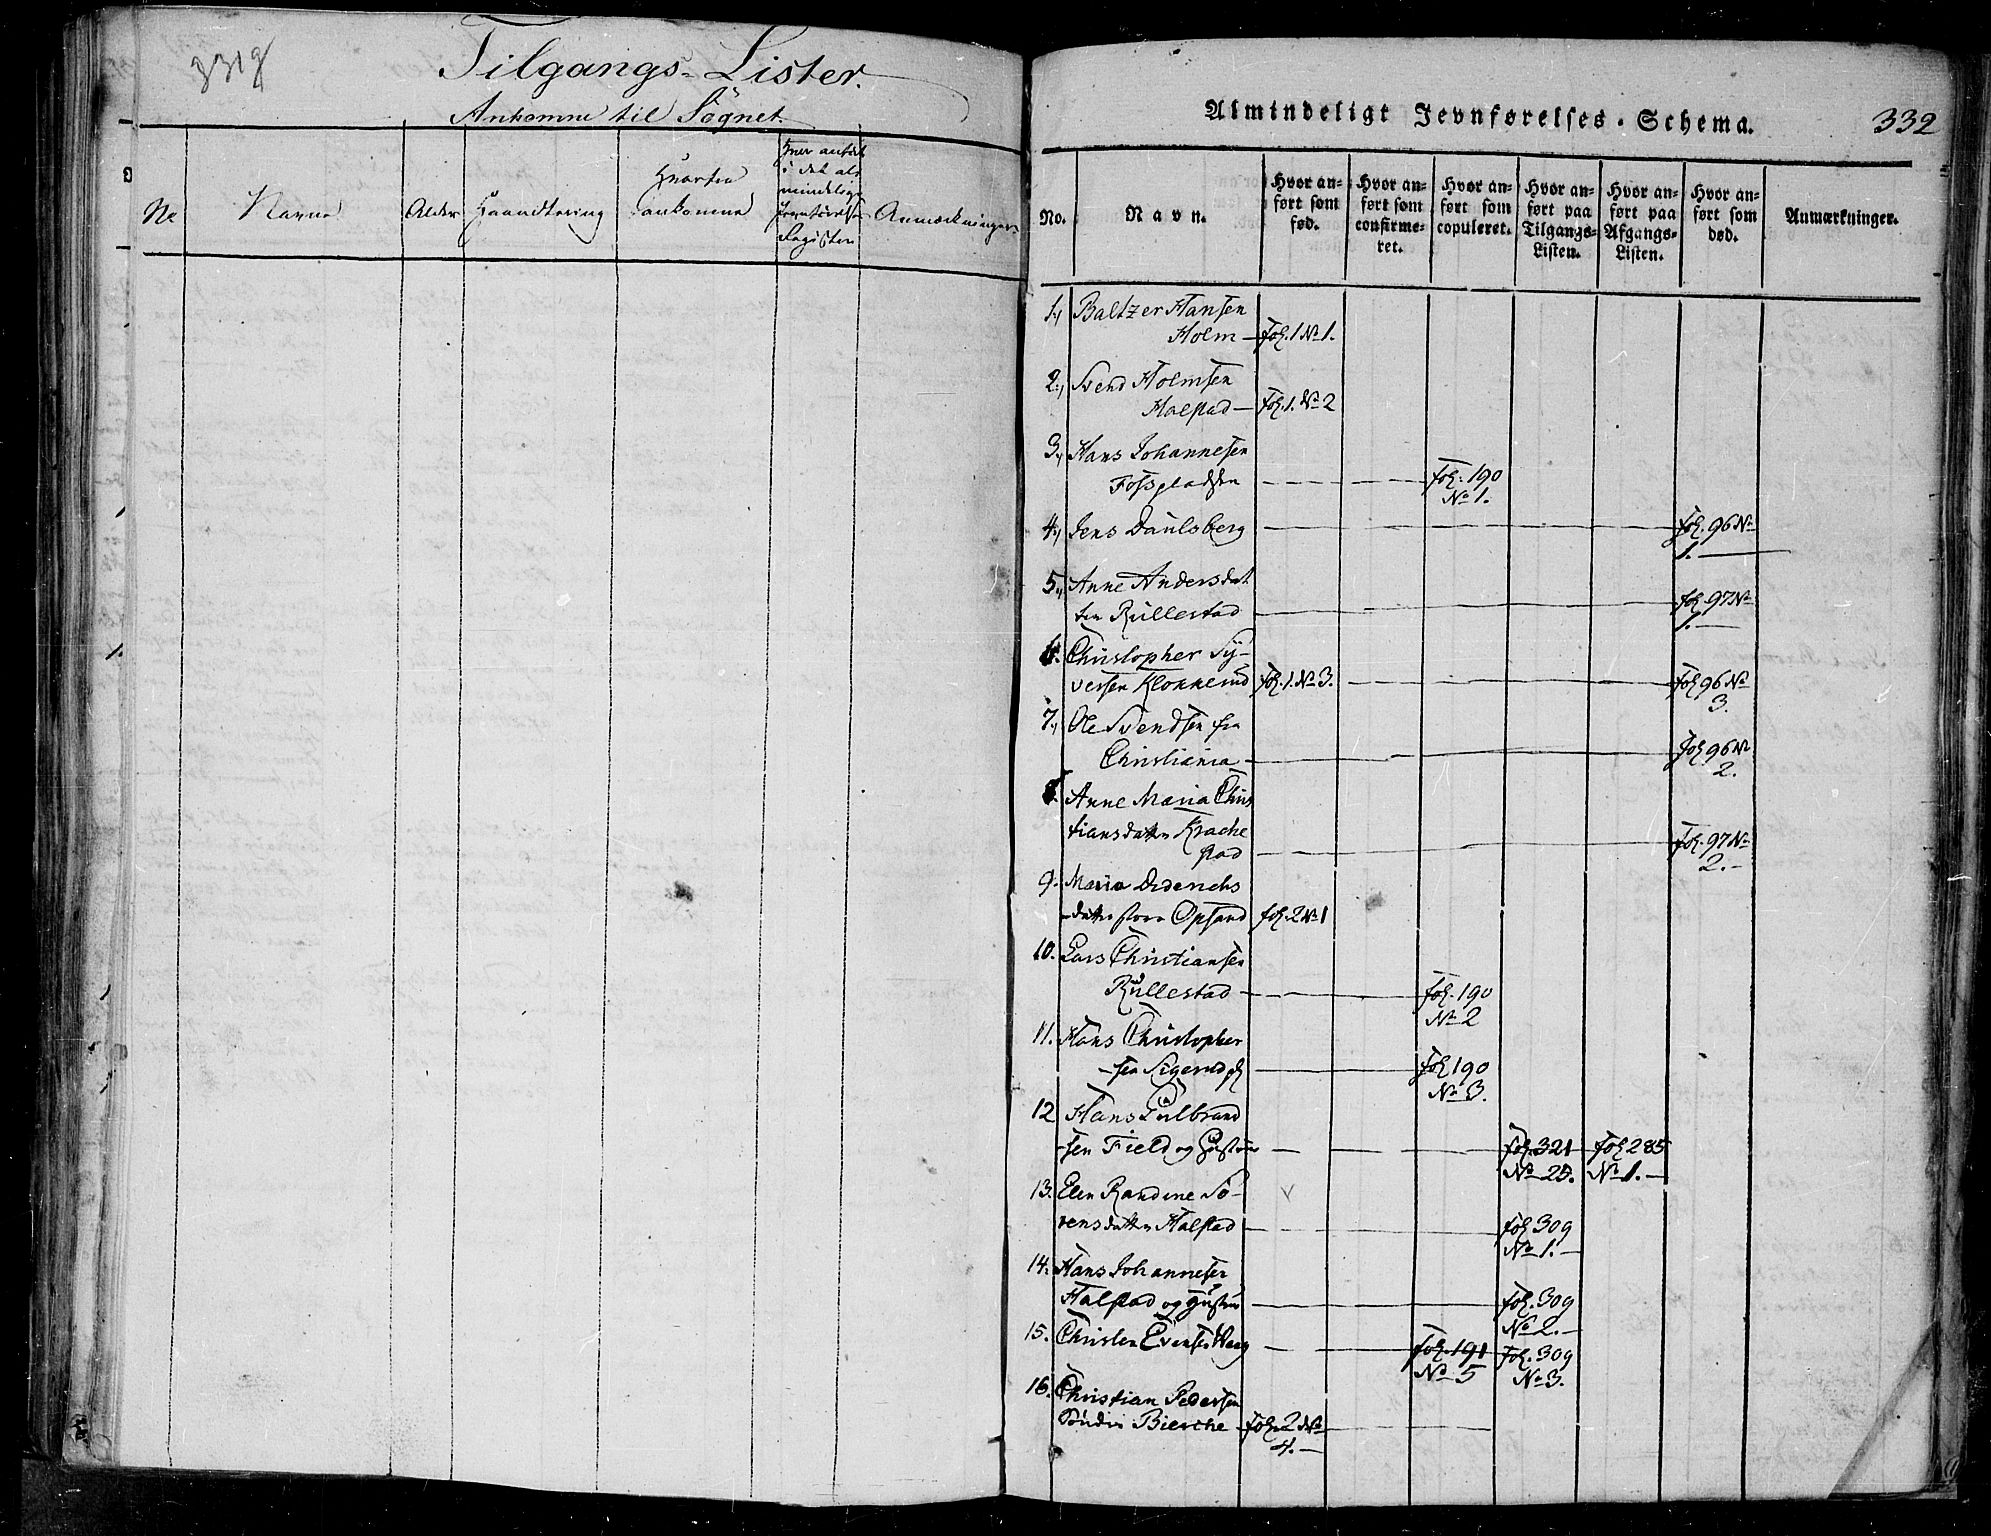 331b
Tilgangs-Lister.
Ankomne til Sognet
No
Navne
Alder
Haandtering
Hvorfra
ankomne
Hvor anført
i det al-
mindelige
Jevnførelses
Register
Anmærkninger
Almindeligt Jevnførelses-Schema.
332
No.
Navn.
Hvor an-
ført som
fød.
Hvor an-
ført som
confirme-
ret.
Hvor an-
ført som
copuleret.
Hvor an-
ført paa
Tilgangs-
Listen.
Hvor an-
ført paa
Afgangs-
Listen.
Hvor an-
ført som
død.
Anmærkninger.
1., Baltzer Hansen
Holm — fol. 1 No 1.
2., Svend Holmsen
Halstad — fol. 1. No 2
3., Hans Johannesen
Fosspladsen — fol. 190
No 1.
4., Jens Daulsberg — fol. 96 No
1. —
5., Anne Andersdat
ter Rullestad — fol 97 No
1. —
6. Christopher Sy-
versen Klokkerud fol. 1. No 3. — fol 96 No
3.
7., Ole Svendsen fra
Christiania — fol 96 No
2.
8. Anne Maria Chris
tiansdatter Krache
stad — fol. 97 No
2. —
9. Maria Diderichs
-datter store Opsand fol. 2 No 1
10. Lars Christiansen
Rullestad — fol. 190
No 2
11. Hans Christopher
-sen Sigerud — fol 190
No 3.
12 Hans Gulbrand
-sen Field og Hustru — fol. 321 fol 285
No 25. No 1. —
13. Elen Randine Sø-
rensdatter Halstad — fol 309
No 1. —
14. Hans Johannesen
Halstad og Hustru — fol. 309
No 2. —
15. Christen Evensen Haug — fol. 191 fol. 309
No 5 No 3.
16. Christian Pedersen
Søndre Bierche — fol. 2 No
4. —